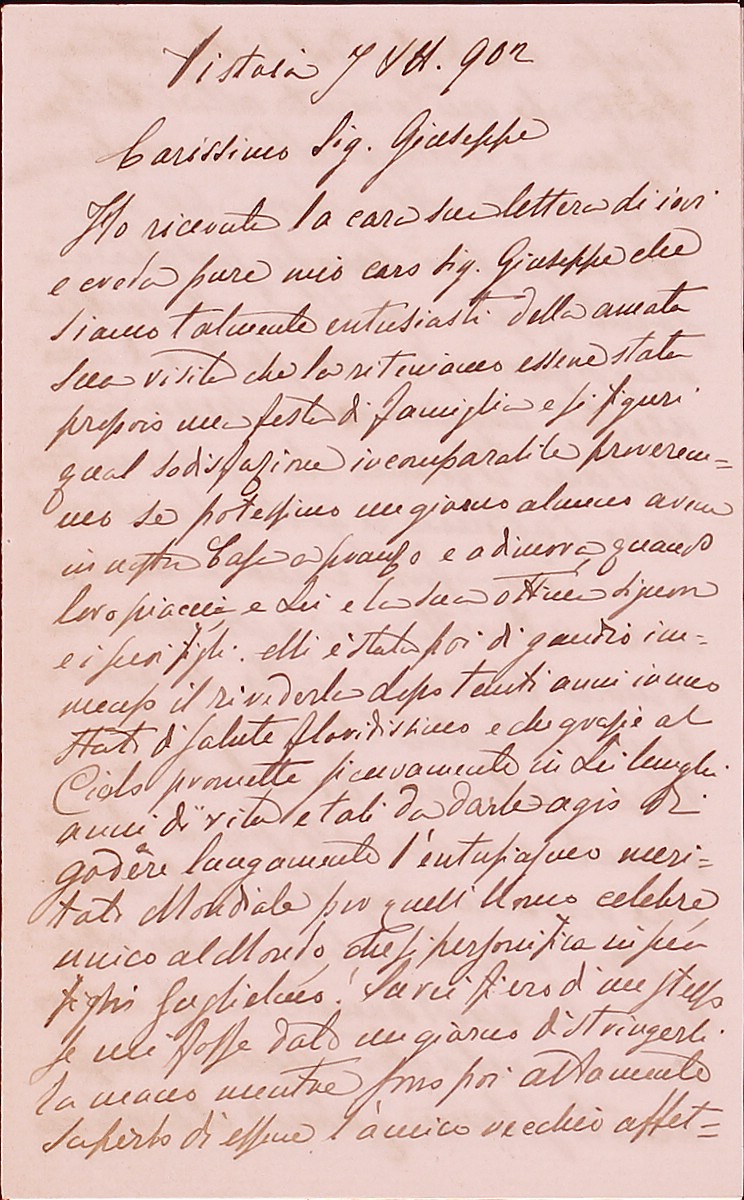 Pistoia 7 VII. 902
Carissimo Sig. Giuseppe
Ho ricevuta la cara sua lettera di ieri
e creda pure mio caro Sig. Giuseppe che
siamo talmente entusiasti della amata
sua visita che la riteniamo essere stata
proprio una festa di famiglia e si figuri
qual sodisfazione incomparabile proverem=
mo se potessimo un giorno almeno averla
in nostra Casa a pranzo e a dimora, quando
loro piaccia, e Lei e la sua ottima signora
e i suoi figli. Mi è stata poi di gaudio im=
menso il rivederla dopo tanti anni in uno
stato di salute floridissimo e che grazie al
Cielo promette sicuramente in Lei lunghi
anni di vita e tali da darle agio di
godere lungamente l'entusiasmo meri=
tato Mondiale per quell'Uomo celebre
unico al Mondo, che si personifica in suo
figlio Guglielmo! Sarei fiero di me stesso
se mi fosse dato un giorno di stringerli
la mano mentre sono poi altamente
superbo di essere l'amico vecchio affet=